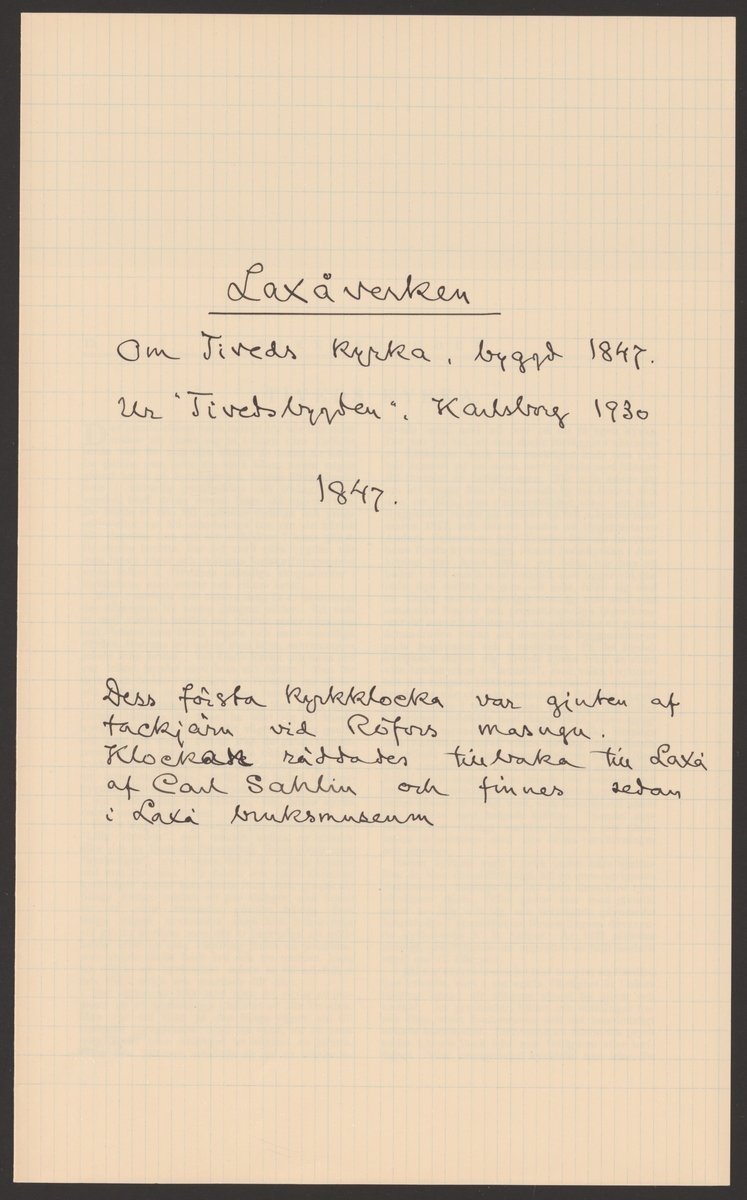 Laxåverken
Om Tiveds kyrka, byggd 1847.
Ur "Tivedsbygden". Karlsborg 1930
1847.
Dess första kyrkklocka var gjuten af
tackjärn vid Röfors masugn.
Klockan räddades tillbaka till Laxå
af Carl Sahlin och finnes sedan
i Laxå bruksmuseum